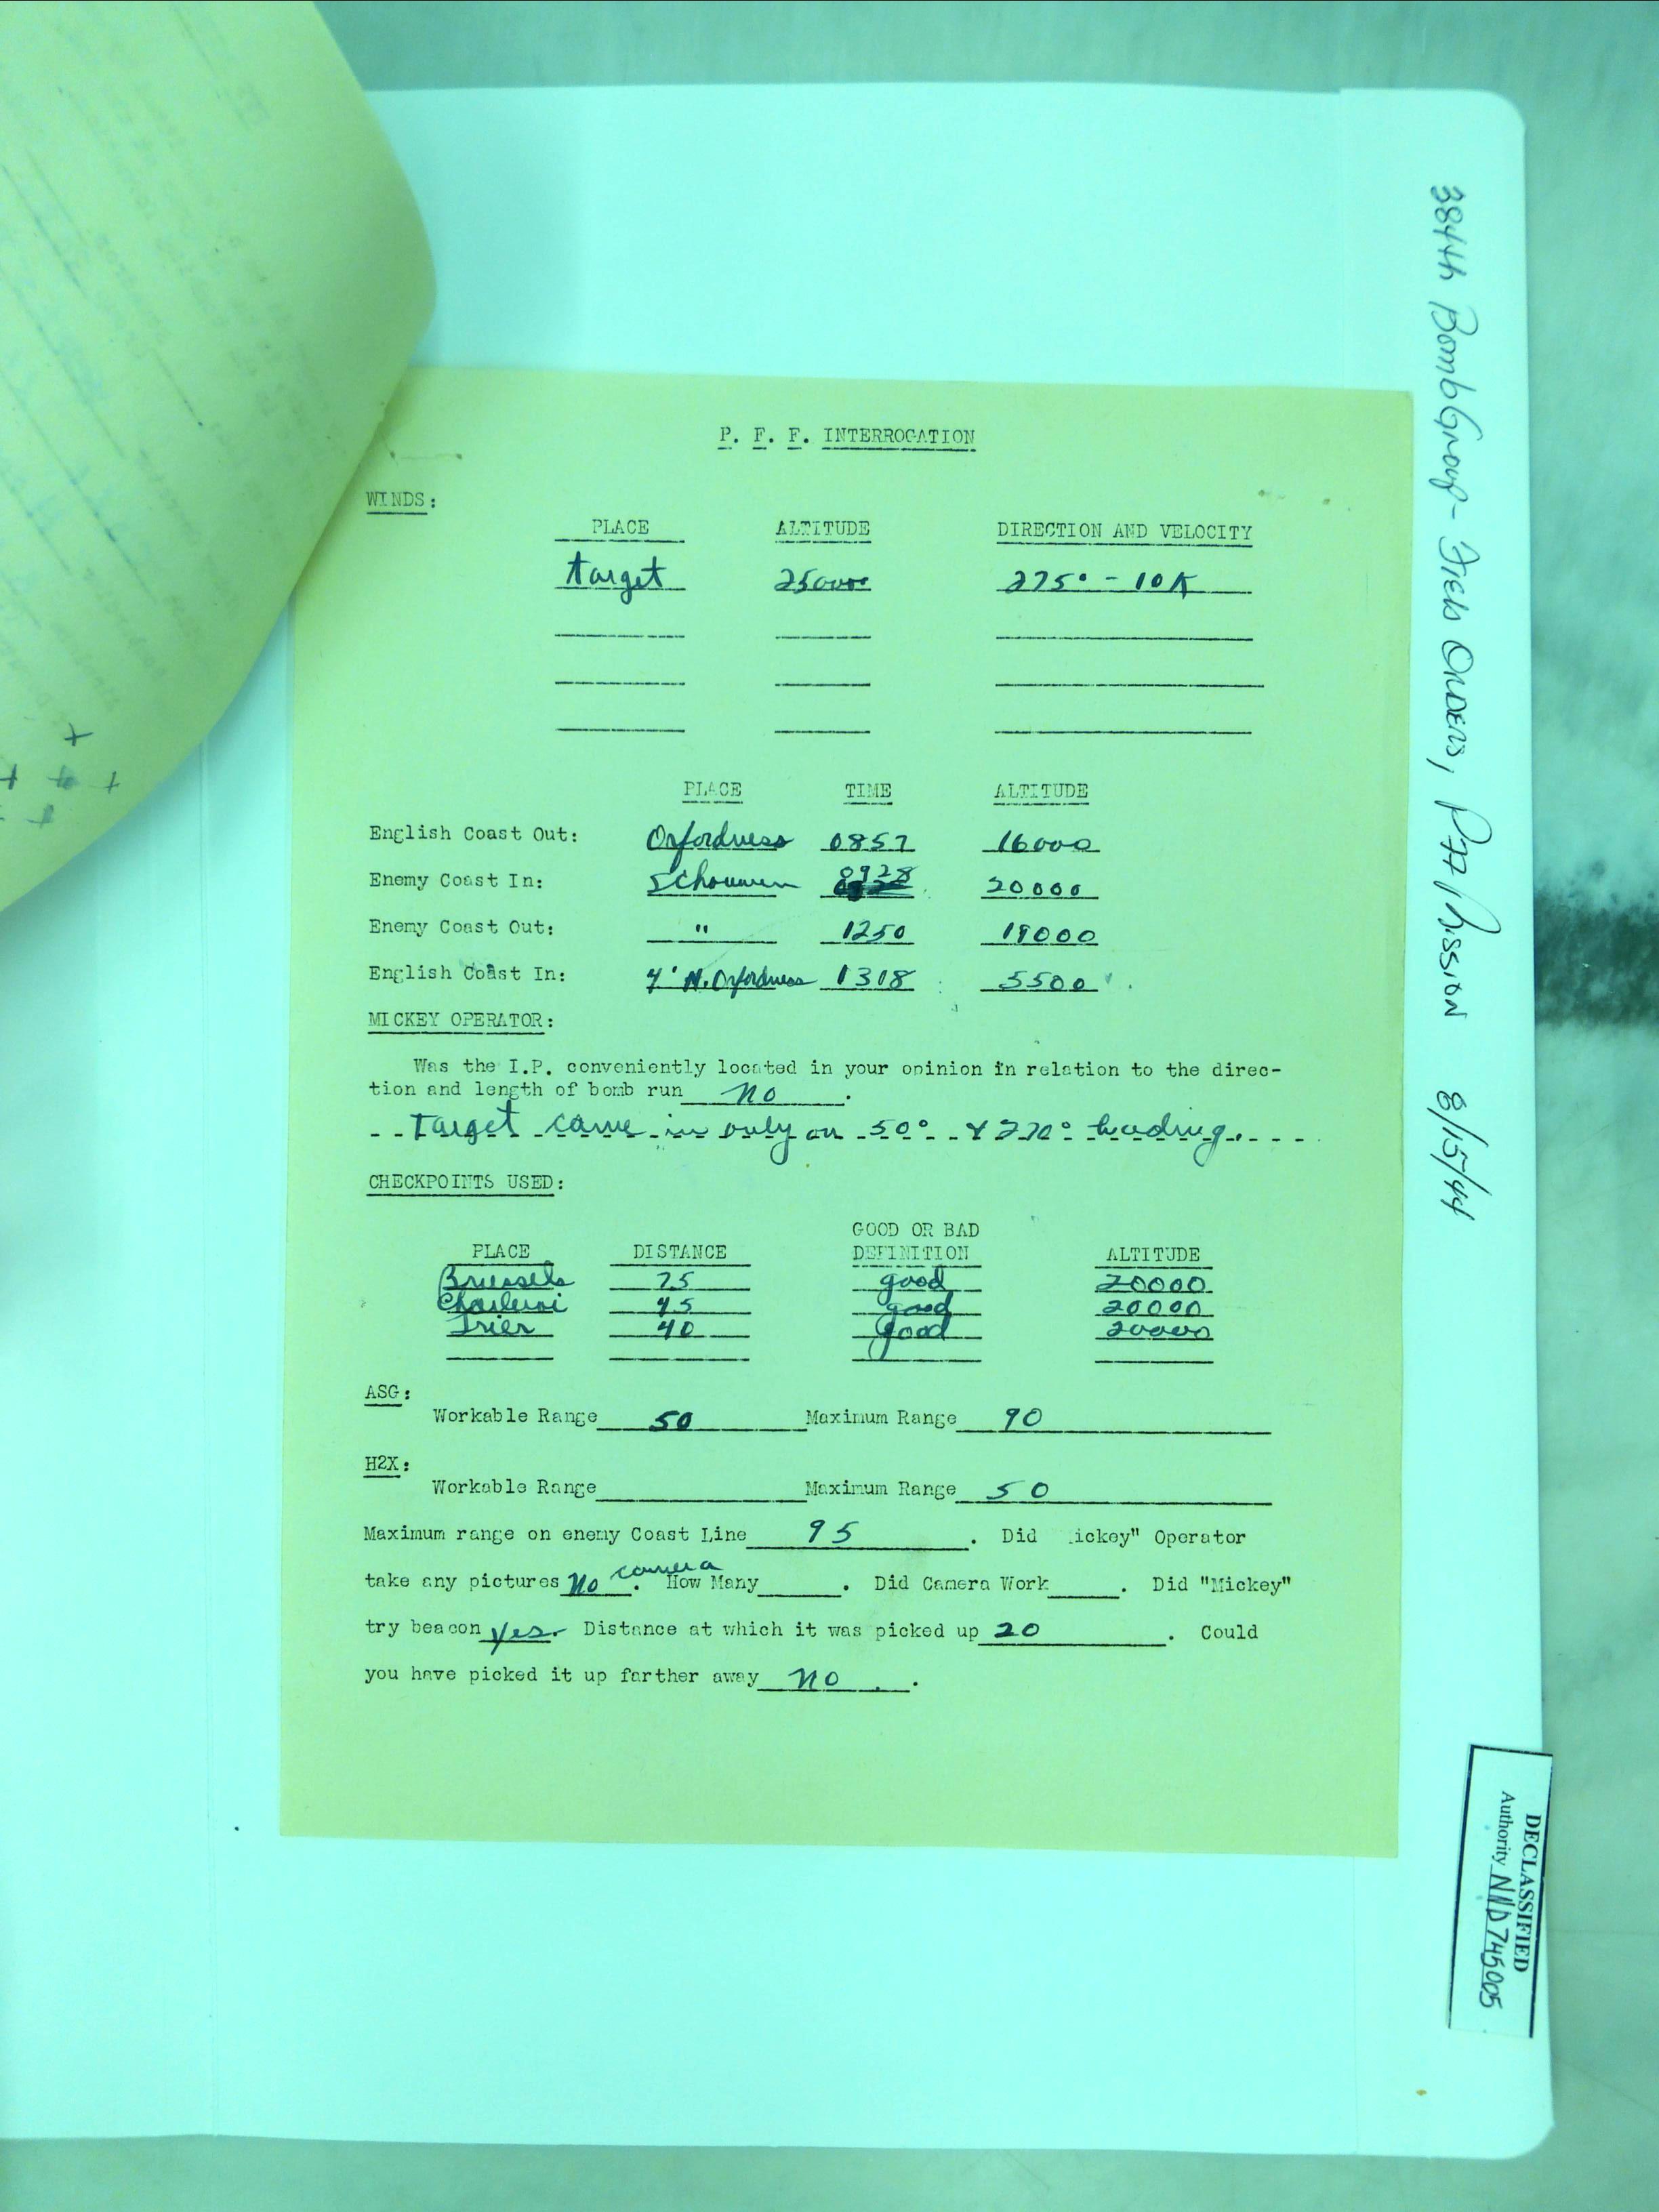 P. F. F. INTERROGATION
WINDS:
PLACE ALTITUDE DIRECTION AND VELOCITY
target 25000 275° - 10K
PLACE TIME ALTITUDE
English Coast Out: Orfordness 0857 16000
Enemy Coast In: Schouwen 0928 20000
Enemy Coast Out: " 1250 19000
English Coast In: 4' N. Orfordness 1308 5500
MICKEY OPERATOR:
Was the I.P. conveniently located in your opinion in relation to the direc-
tion and length of bomb run no.
Target came in only on 50° & 270° heading.
CHECKPOINTS USED:
GOOD OR BAD
PLACE DISTANCE DEFINITION ALTITUDE
Brussels 25 good 20000
Charleroi 45 good 20000
Trier 40 good 20000
ASG:
Workable Range 50 Maximum Range 90
H2X:
Workable Range Maximum Range 50
Maximum range on enemy Coast Line 95. Did ickey" Operator
take any pictures No camera. How Many . Did Camera Work . Did "Mickey"
try beacon yes. Distance at which it was picked up 20. Could
you have picked it up farther away no.
384th Bomb Group - Field Orders, P77 Mission 8/15/44
DECLASSIFIED
Authority NND 745005